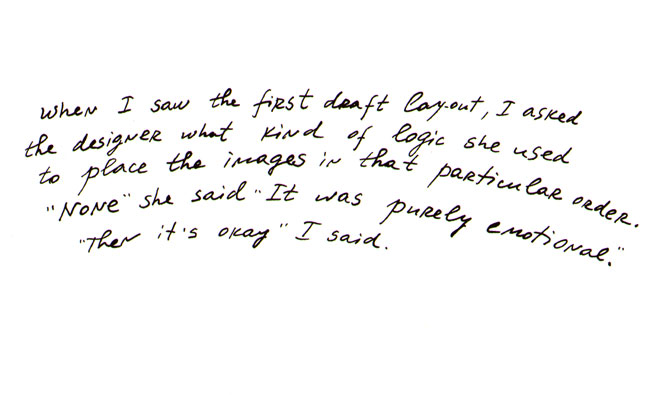 When I saw the first draft layout, I asked
the designer what kind of logic she used
to place the images in that particular order.
"None" she said "It was purely emotional."
"Then it's okay" I said.